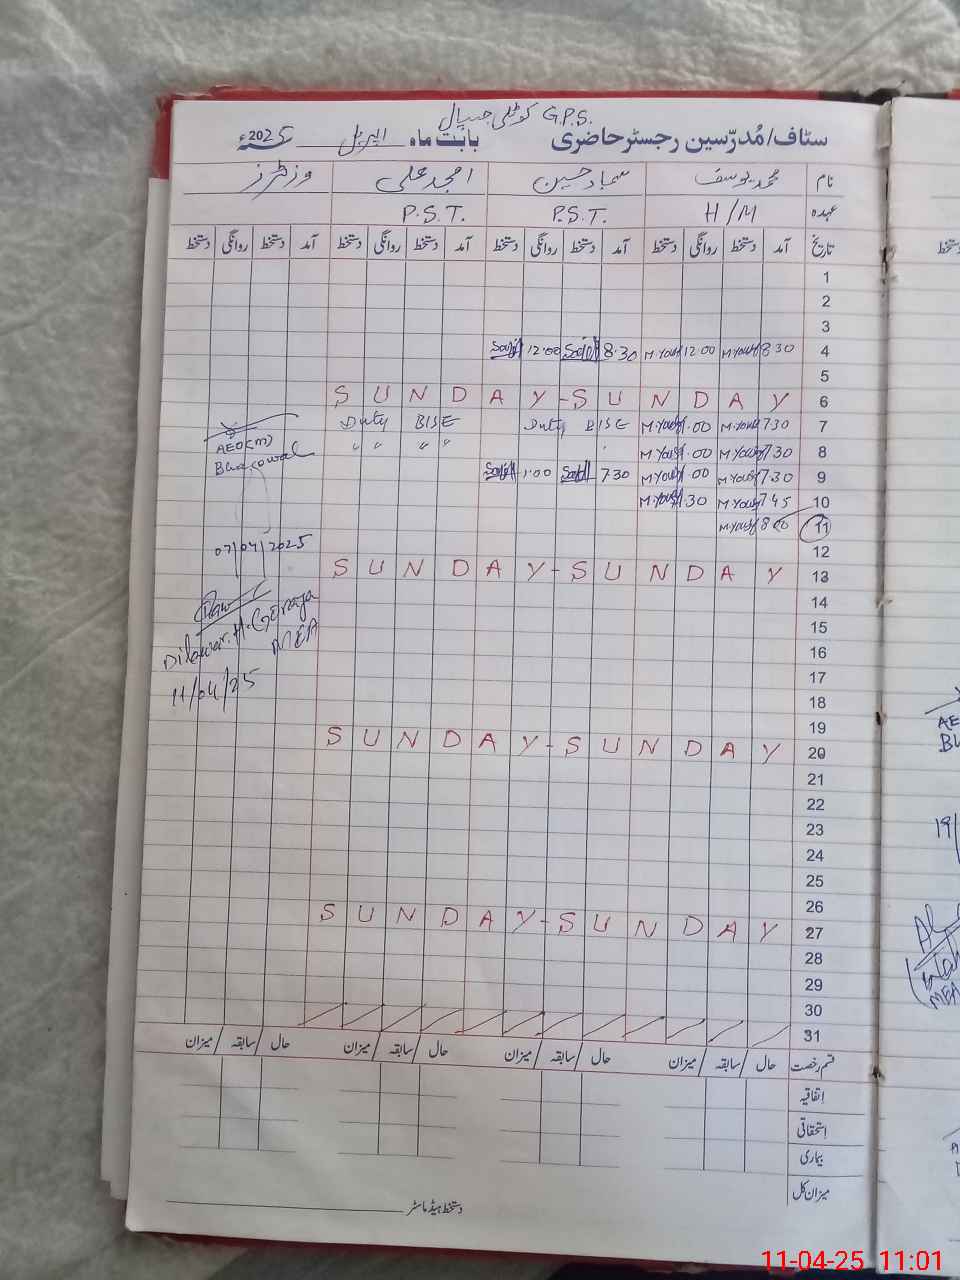 G.P.S. کوٹلی جسپال
سٹاف/مُدرّسین رجسٹر حاضری بابت ماہ اپریل 2025ء
نام محمد یوسف سجاد حسین امجد علی وزٹرز
عہدہ H/M P.S.T. P.S.T.
تاریخ آمد دستخط روانگی دستخط آمد دستخط روانگی دستخط آمد دستخط روانگی دستخط آمد دستخط روانگی دستخط
1
2
3
12:00 8:30 M.Yousf 12:00 M.Yousf 8 30 4
5
S U N D A Y - S U N D A Y 6
Duty BISE Duty BISE M.Yousf 1.00 M.Yousf 7 30 7
" " " " M.Yousf 1.00 M.Yousf 7.30 8
1:00 7 30 M.Yousf 1.00 M.Yousf 7.30 9
M.Yousf 1.30 M.Yousf 7 45 10
M.Yousf 8 00 11
12
S U N D A Y - S U N D A Y 13
14
15
16
17
18
19
S U N D A Y - S U N D A Y 20
21
22
23
24
25
26
S U N D A Y - S U N D A Y 27
28
29
30
31
AEO(m)
07/04/2025
MEA
11/04/25
قسم رخصت حال / سابقہ / میزان حال / سابقہ / میزان حال / سابقہ / میزان حال / سابقہ / میزان
اتفاقیہ
استحقاقی
بیماری
میزان کل
دستخط ہیڈ ماسٹر
دستخط
AE
19/
MEA
11-04-25 11:01